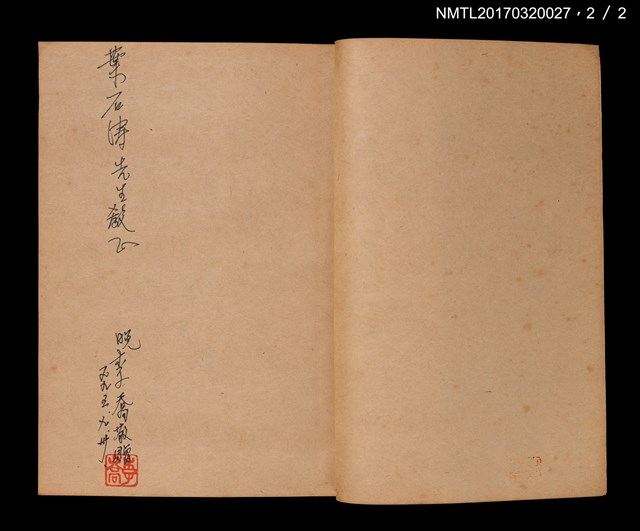 NMTL20170320027，2 / 2
葉石濤先生教正
晚李喬敬贈
李喬